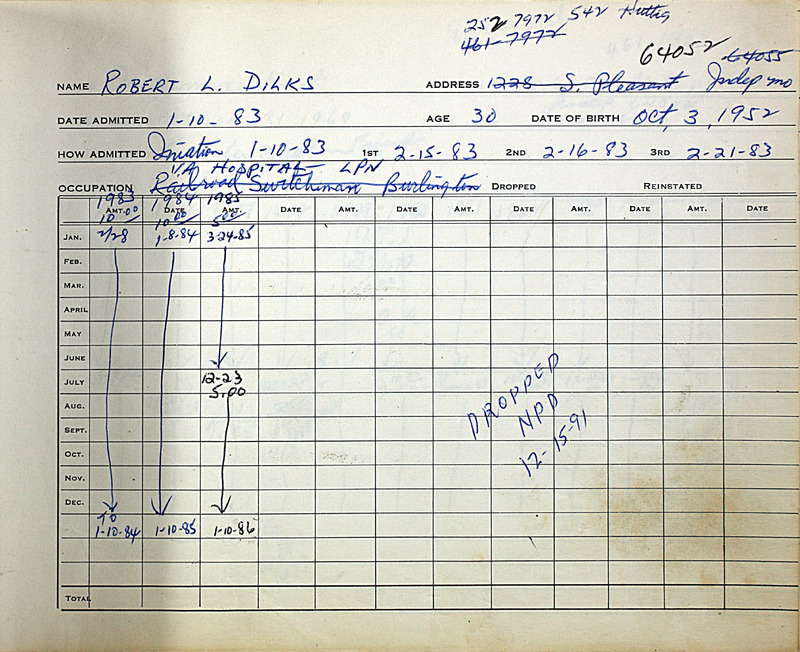 252 7972 542 Huttig
461-7972
64052 64055
NAME ROBERT L. DILKS ADDRESS 1228 S. Pleasant Indep mo
DATE ADMITTED 1-10-83 AGE 30 DATE OF BIRTH Oct, 3, 1952
HOW ADMITTED Iniation 1-10-83 1ST 2-15-83 2ND 2-16-83 3RD 2-21-83
VA HOSPITAL LPN
OCCUPATION Railroad Switchman Burlington DROPPED REINSTATED
1983 1984 1985
AMT. DATE AMT. DATE AMT. DATE AMT. DATE AMT. DATE AMT. DATE
10.00 10.00 5.00
JAN. 2/28 1-8-84 3-24-85
FEB.
MAR.
APRIL
MAY
JUNE
JULY 12-23
5.00
AUG.
SEPT.
OCT.
NOV.
DEC.
TO
1-10-84 1-10-85 1-10-86
DROPPED
NPD
12-15-91
TOTAL